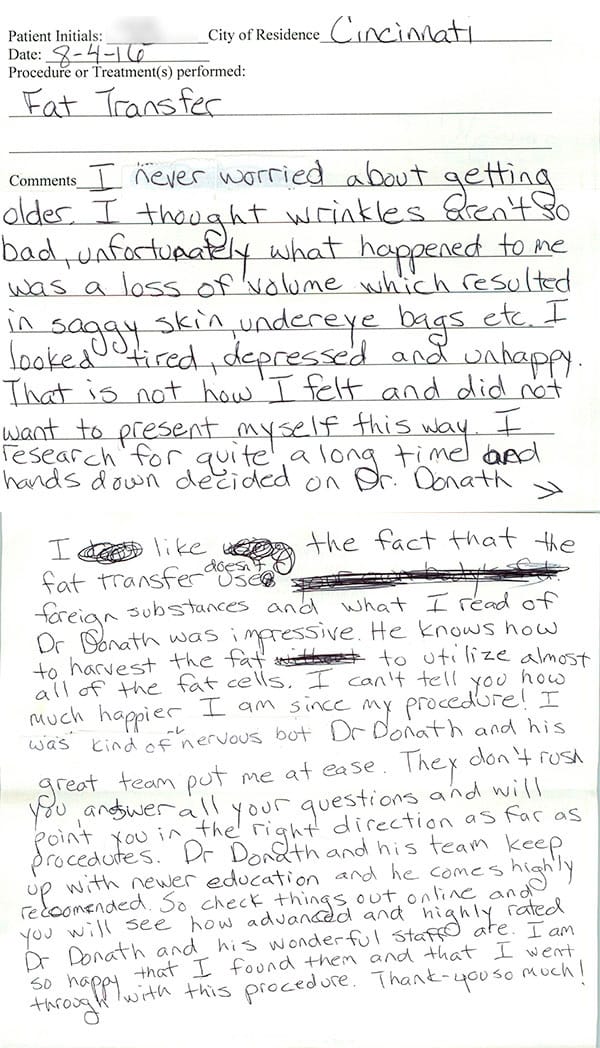 Patient Initials: City of Residence Cincinnati
Date: 8-4-16
Procedure or Treatment(s) performed:
Fat Transfer
Comments I never worried about getting
older. I thought wrinkles aren't so
bad, unfortunately what happened to me
was a loss of volume which resulted
in saggy skin, undereye bags etc. I
looked tired, depressed and unhappy.
That is not how I felt and did not
want to present myself this way. I
research for quite a long time and
hands down decided on Dr. Donath
I like the fact that the
fat transfer doesn't use
foreign substances and what I read of
Dr Donath was impressive. He knows how
to harvest the fat to utilize almost
all of the fat cells. I can't tell you how
much happier I am since my procedure! I
was kind of nervous but Dr Donath and his
great team put me at ease. They don't rush
you, answer all your questions and will
point you in the right direction as far as
procedures. Dr Donath and his team keep
up with newer education and he comes highly
reccomended. So check things out online and
you will see how advanced and highly rated
Dr Donath and his wonderful staff are. I am
so happy that I found them and that I went
through with this procedure. Thank-you so much!